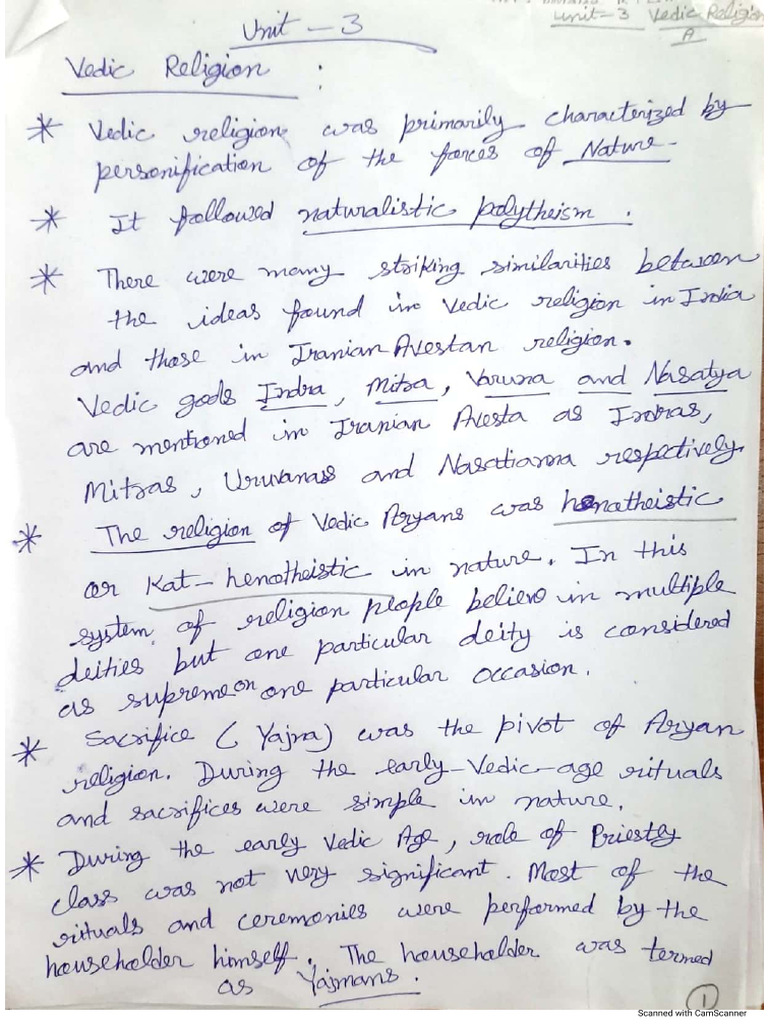 Unit - 3 Vedic Religion
A
Unit - 3
Vedic Religion :
* Vedic religion was primarily characterized by
personification of the forces of Nature -
* It followed naturalistic polytheism .
* There were many striking similarities between
the ideas found in Vedic religion in India
and those in Iranian Avestan religion.
Vedic gods Indra, Mitra, Varuna and Nasatya
are mentioned in Iranian Avesta as Indras,
Mitras, Uruvanass and Nasatianna respectively.
* The religion of Vedic Aryans was henatheistic
or Kat-henotheistic in nature. In this
system of religion people believe in multiple
deities but one particular deity is considered
as supreme on one particular occasion.
* Sacrifice (Yajna) was the pivot of Aryan
religion. During the early-Vedic-age rituals
and sacrifices were simple in nature.
* During the early Vedic Age, role of Priestly
class was not very significant. Most of the
rituals and ceremonies were performed by the
householder himself. The householder was termed
as Yajmans.
1
Scanned with CamScanner